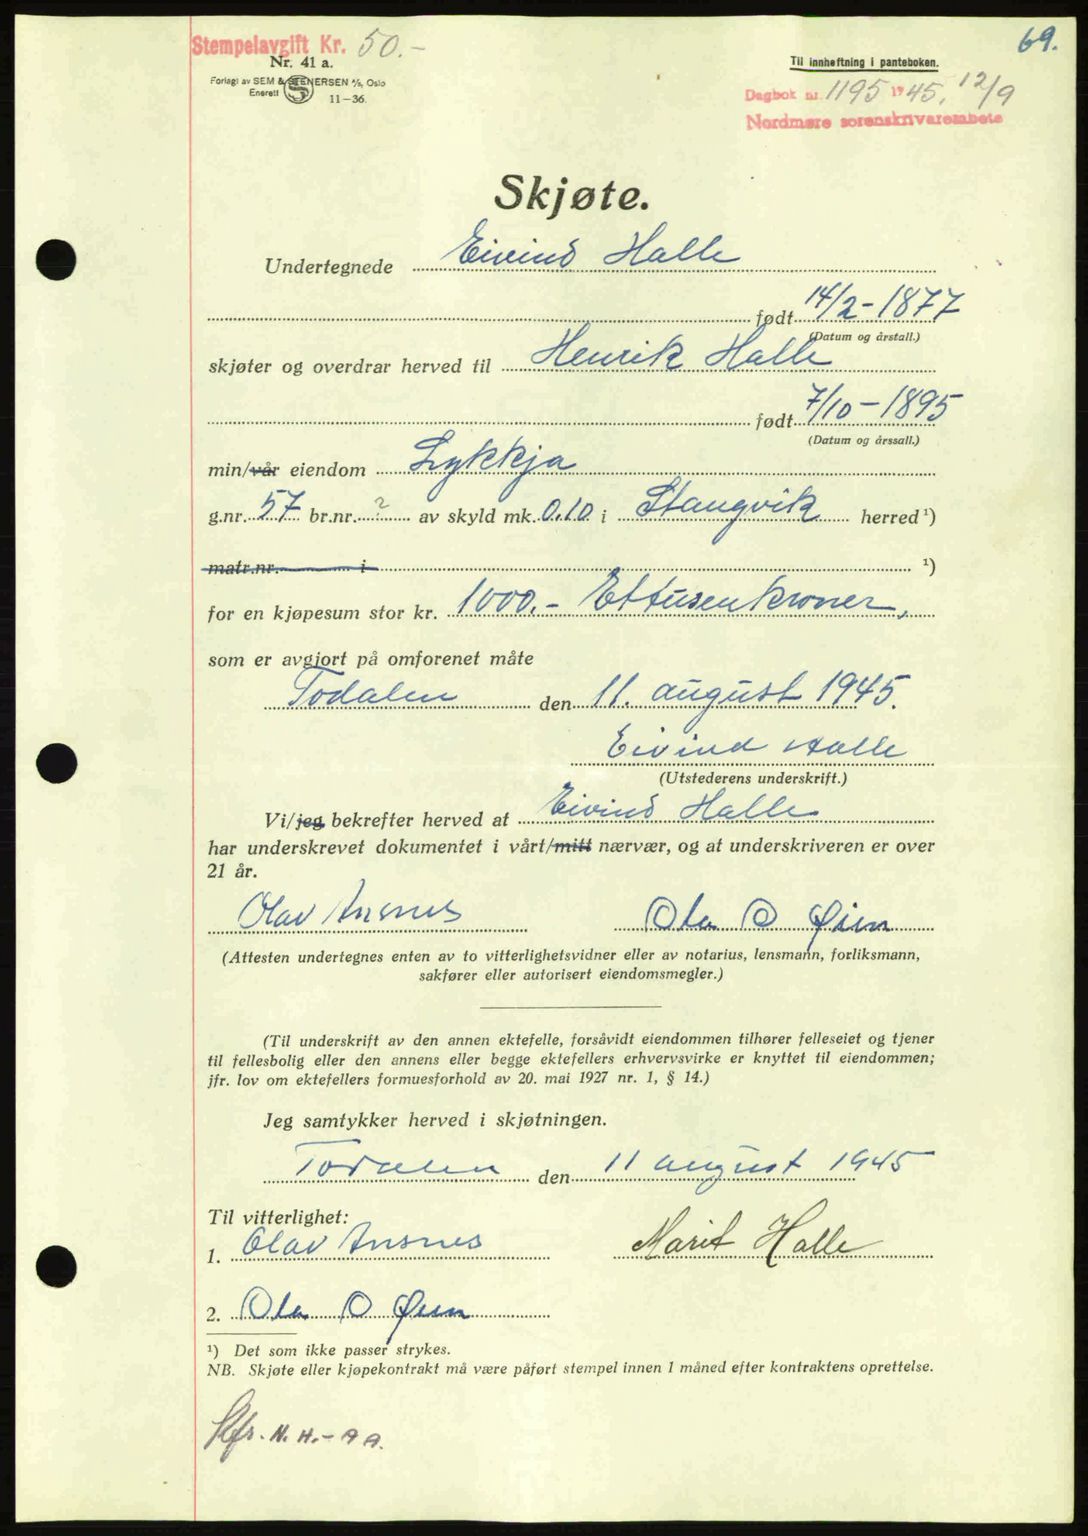 Stempelavgift Kr. 50.-
69.
Nr. 41 a.
Forlagt av SEM & STENERSEN A/S, Oslo
Enerett S 11-36.
Til innheftning i panteboken.
Dagbok nr. 1195 1945, 12/9
Nordmøre sorenskriverembete
Skjøte.
Undertegnede Eivind Halle
født 14/2-1877
(Datum og årstall.)
skjøter og overdrar herved til Henrik Halle
født 7/10-1895
(Datum og årssall.)
min/vår eiendom Lykkja
g.nr. 57 br.nr. ? av skyld mk. 0.10 i Stangvik herred ¹)
matr.nr. i ¹)
for en kjøpesum stor kr. 1000.- Ettusenkroner,
som er avgjort på omforenet måte
Todalen den 11. august 1945.
Eivind Halle
(Utstederens underskrift.)
Vi/jeg bekrefter herved at Eivind Halle
har underskrevet dokumentet i vårt/mitt nærvær, og at underskriveren er over
21 år.
Olav Ansnes Ola O Øien
(Attesten undertegnes enten av to vitterlighetsvidner eller av notarius, lensmann, forliksmann,
sakfører eller autorisert eiendomsmegler.)
(Til underskrift av den annen ektefelle, forsåvidt eiendommen tilhører felleseiet og tjener
til fellesbolig eller den annens eller begge ektefellers erhvervsvirke er knyttet til eiendommen;
jfr. lov om ektefellers formuesforhold av 20. mai 1927 nr. 1, § 14.)
Jeg samtykker herved i skjøtningen.
Todalen den 11 august 1945
Til vitterlighet:
1. Olav Ansnes Marit Halle
2. Ola O Øien
¹) Det som ikke passer strykes.
NB. Skjøte eller kjøpekontrakt må være påført stempel innen 1 måned efter kontraktens oprettelse.